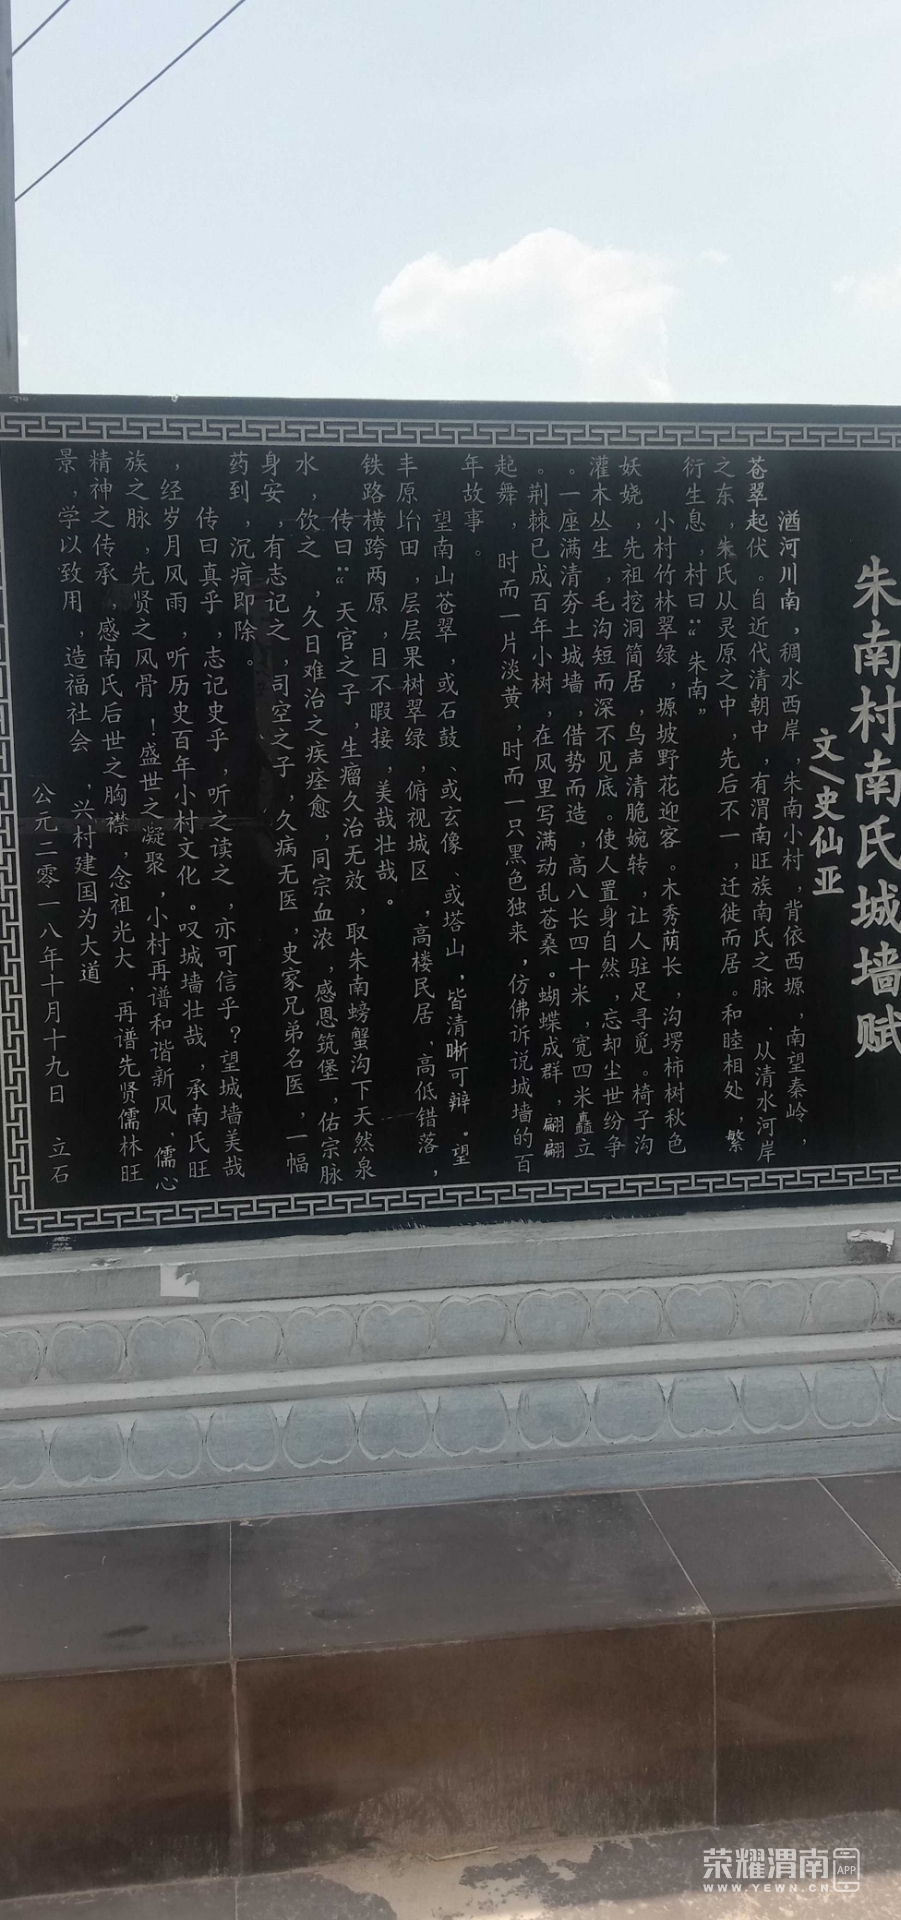 朱南村南氏城墙赋
文\史仙亚
湭河川南，稠水西岸，朱南小村，背依西塬，南望秦岭，
苍翠起伏。自近代清朝中，有渭南旺族南氏之脉、从清水河岸
之东，朱氏从灵原之中，先后不一，迁徙而居。和睦相处，繁
衍生息，村曰：“朱南”
小村竹林翠绿，塬坡野花迎客。木秀荫长，沟塄柿树秋色
妖娆，先祖挖洞简居，鸟声清脆婉转，让人驻足寻觅。椅子沟
灌木丛生，毛沟短而深不见底。使人置身自然，忘却尘世纷争
。一座满清夯土城墙，借势而造，高八长四十米，宽四米矗立
。荆棘已成百年小树，在风里写满动乱苍桑。蝴蝶成群，翩翩
起舞，时而一片淡黄，时而一只黑色独来，仿佛诉说城墙的百
年故事。
望南山苍翠，或石鼓、或玄像、或塔山，皆清晰可辩。望
丰原坮田，层层果树翠绿，俯视城区，高楼民居、高低错落，
铁路横跨两原，目不暇接，美哉壮哉。
传曰：“天官之子，生瘤久治无效，取朱南螃蟹沟下天然泉
水，饮之，久日难治之疾痊愈，同宗血浓，感恩筑堡，佑宗脉
身安，有志记之，司空之子，久病无医，史家兄弟名医，一幅
药到，沉疴即除。
传曰真乎，志记史乎，听之读之，亦可信乎？望城墙美哉
，经岁月风雨，听历史百年小村文化。叹城墙壮哉，承南氏旺
族之脉，先贤之风骨！盛世之凝聚，小村再谱和谐新风，儒心
精神之传承，感南氏后世之胸襟，念祖光大，再谱先贤儒林旺
景，学以致用，造福社会，兴村建国为大道
公元二零一八年十月十九日 立石
荣耀渭南 APP
WWW.YEWN.CN